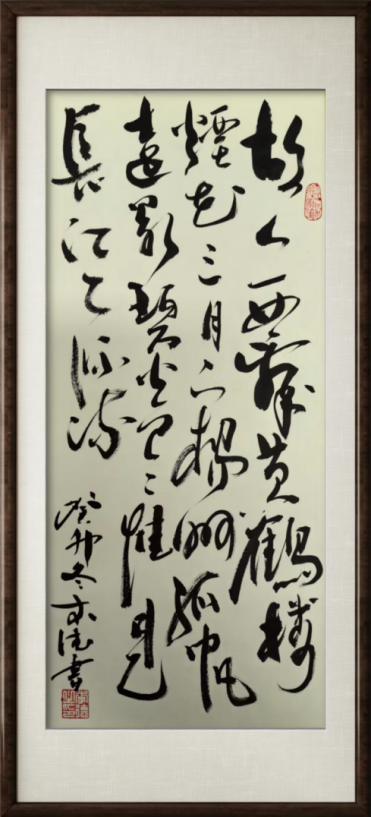 故人西辭黄鶴樓
煙花三月下楊州孤帆
遠影碧空尽惟見
長江天際流
癸卯冬書